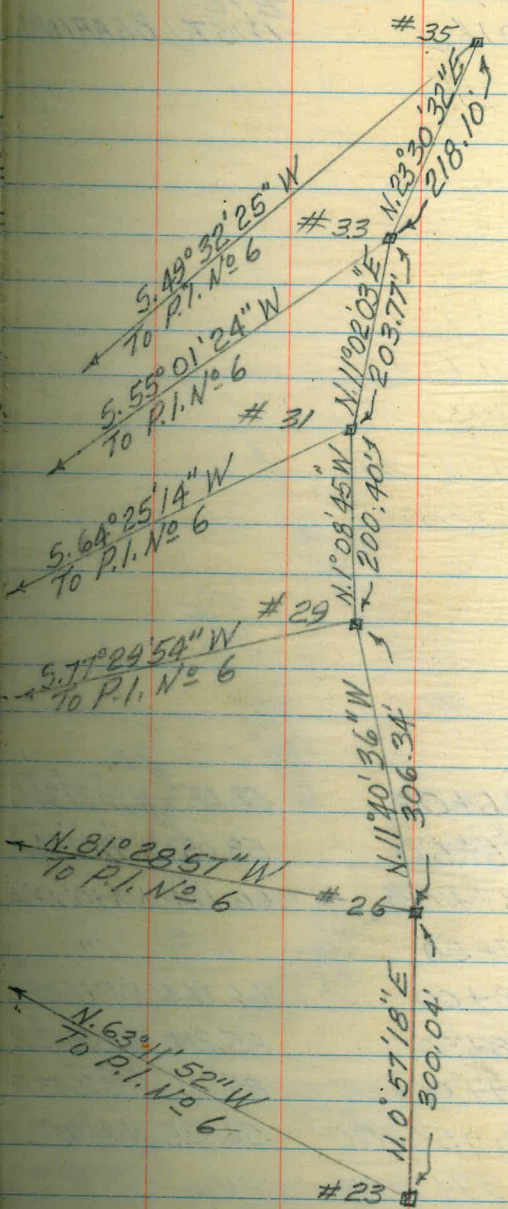 # 35
N. 23° 30' 32" E
218.10'
S. 49° 32' 25" W
To P.I. Nº 6
# 33
N. 11° 02' 03" E
203.77'
S. 55° 01' 24" W
To P.I. Nº 6
# 31
N. 1° 08' 45" W
200.40'
S. 64° 25' 14" W
To P.I. Nº 6
# 29
S. 77° 29' 54" W
To P.I. Nº 6
N. 11° 40' 36" W
306.34'
N. 81° 28' 57" W
To P.I. Nº 6
# 26
N. 0° 57' 18" E
300.04'
N. 63° 11' 52" W
To P.I. Nº 6
# 23